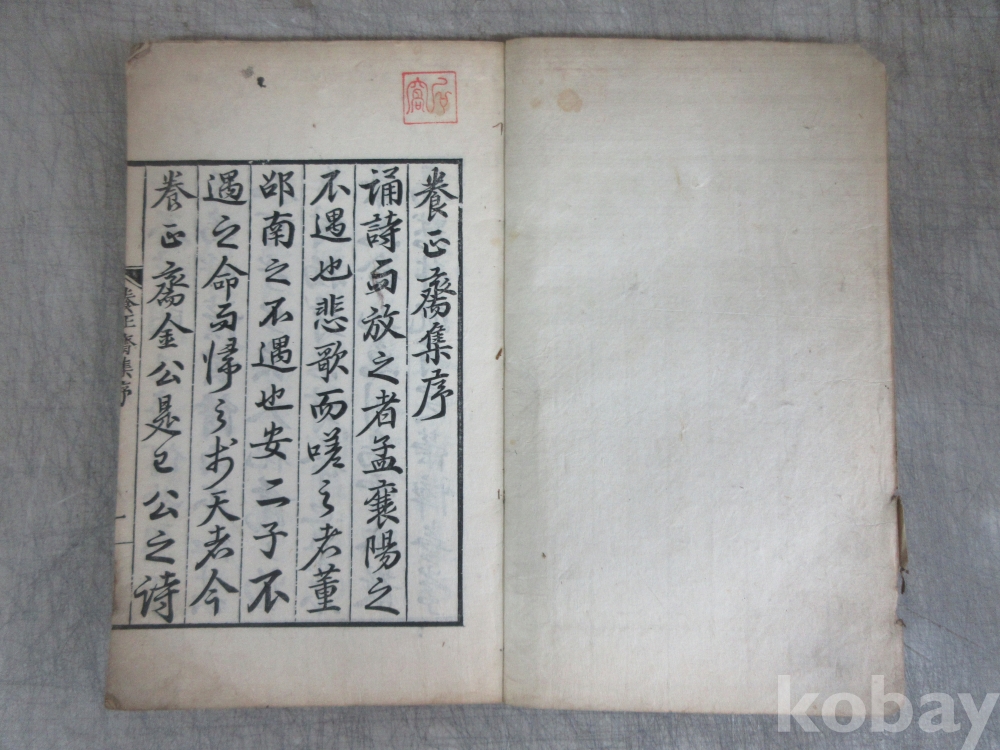 養正齋集序
誦詩而放之者孟襄陽之
不遇也悲歌而嗟之者董
邵南之不遇也安二子不
遇之命而歸之於天者今
養正齋金公是已公之詩
養正齋集序
一
kobay